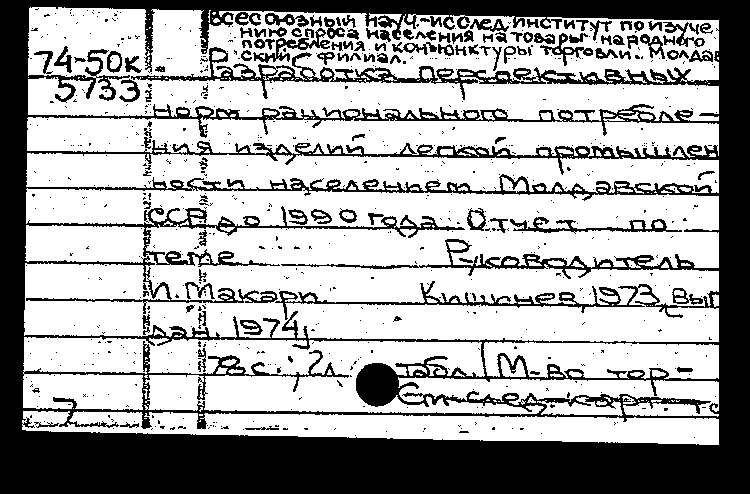 Всесоюзный науч.-исслед. институт по изуче
нию спроса населения на товары народного
потребления и конъюнктуры торговли. Молдав
ский филиал.
74-50к
5733
Разработка перспективных
норм рационального потребле-
ния изделий легкой промышлен
ности населением Молдавской
ССР до 1990 года. Отчет по
теме. Руководитель
И. Макари. Кишинев, 1973, [вып
дан. 1974]
78 с.; 2л. табл. (М-во тор-
См. след. карт.
7